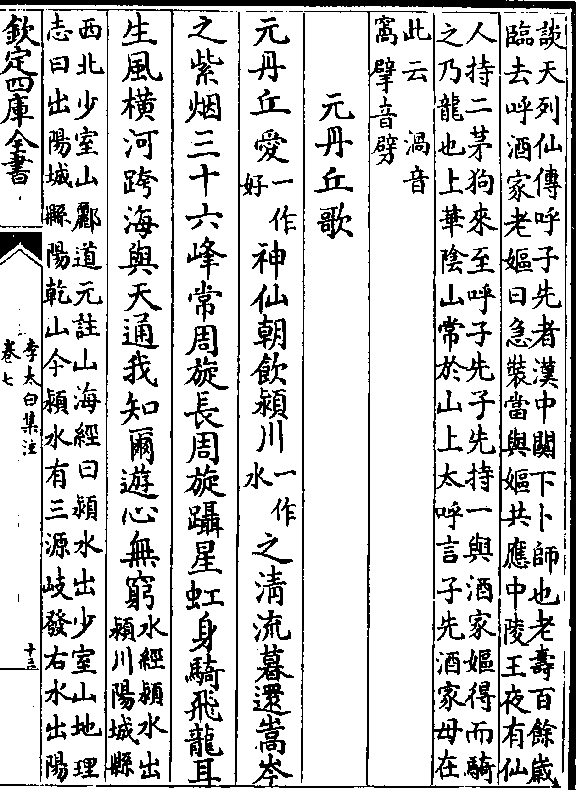 談天列仙傳呼子先者漢中闗下卜師也老壽百餘歲
臨去呼酒家老嫗曰急裝當與嫗共應中陵王夜有仙
人持二茅狗來至呼子先子先持一與酒家嫗得而騎
之乃龍也上華隂山常於山上大呼言子先酒家母在
此云　渦音
窩擘音劈
元丹丘歌
元丹丘愛一作好神仙朝飲潁川一作水之清流暮還嵩岑
之紫烟三十六峰常周旋長周旋躡星虹身騎飛龍耳
生風横河跨海與天通我知爾遊心無窮水經潁水出潁川陽城縣
西北少室山酈道元註山海經曰潁水出少室山地理
志曰出陽城縣陽乾山今潁水有三源岐發右水出陽
欽定四庫全書
李太白集注
卷七
十三